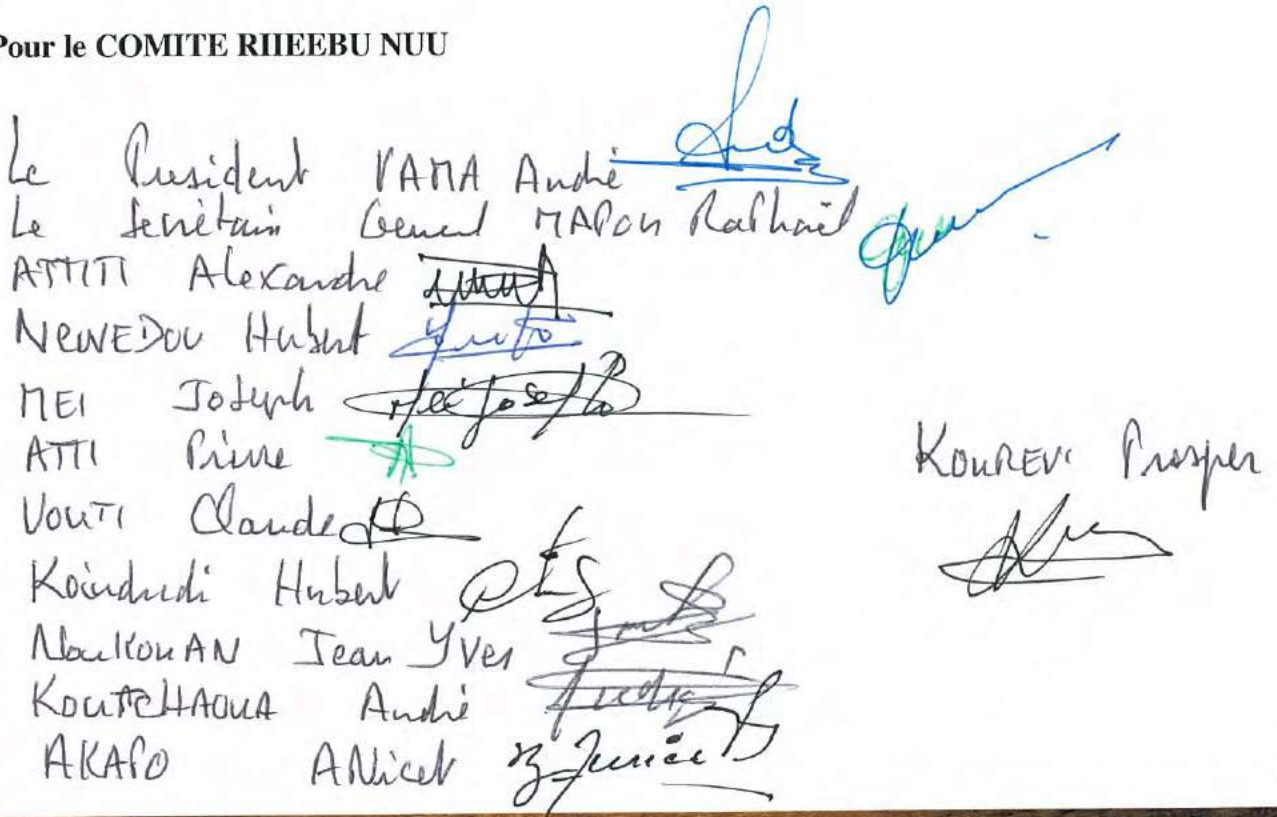 Pour le COMITE RHEEBU NUU
Le President VAMA André
Le Secrétaire General MAPOU Raphaël
ATTITI Alexandre
NEWEDOU Hubert
MEI Joseph
ATTI Pierre
VOUTI Claude
KOUREVI Prosper
Koindredi Hubert
NouKouAN Jean Yves
KOUTCHAOUA André
AKAPO ANicet